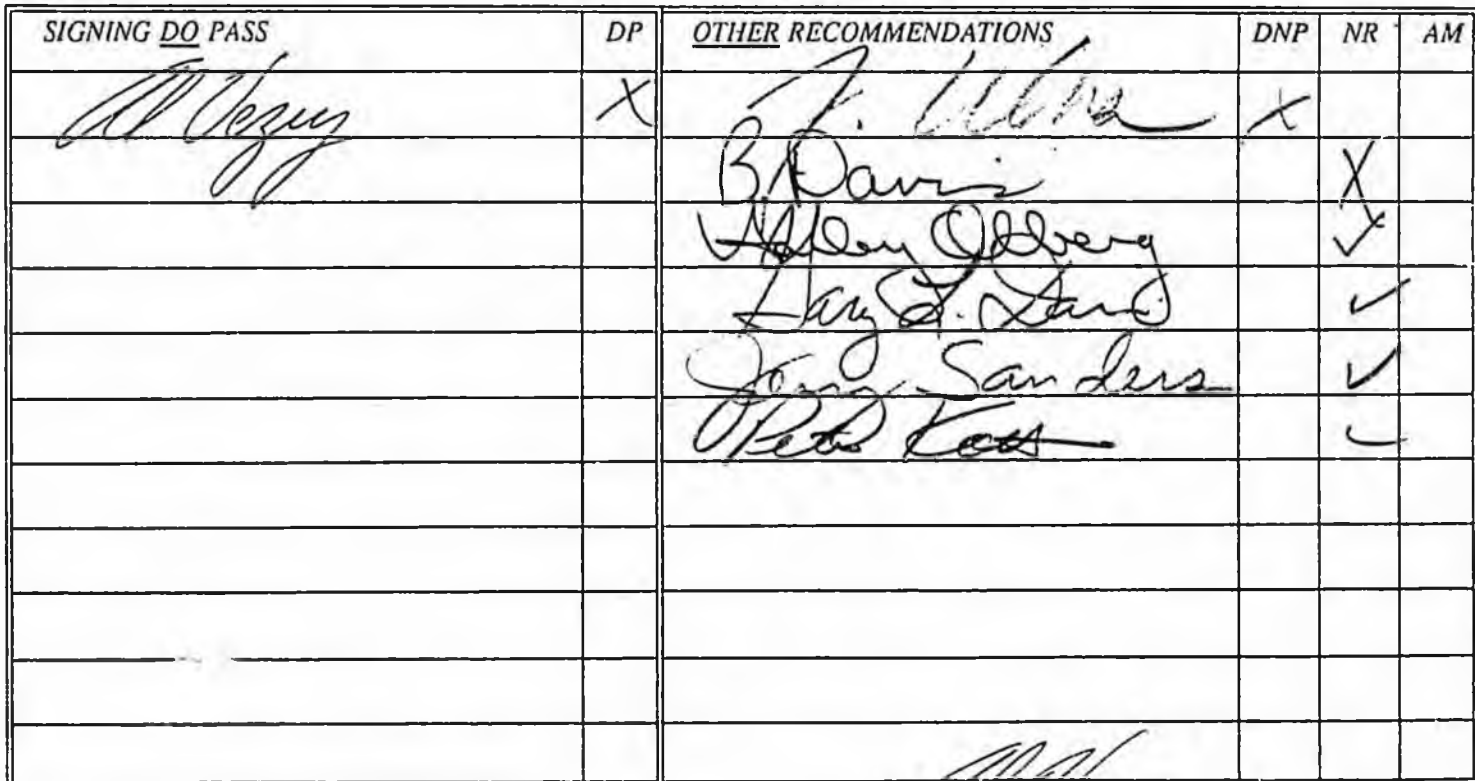 SIGNING DO PASS DP OTHER RECOMMENDATIONS DNP NR AM
Al Vezey X X
B. Davis X
✓
Gary L. Davis ✓
Jerry Sanders ✓
Pete Kott ✓